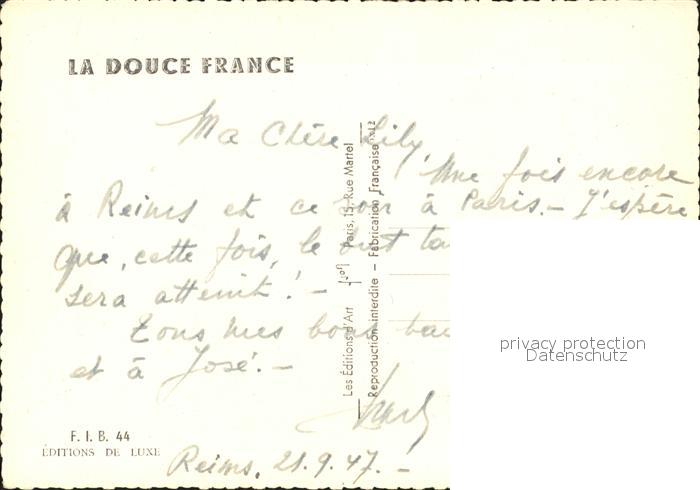 LA DOUCE FRANCE
Ma Chère Lily,
Une fois encore
à Reims et ce soir à Paris. - J'espère
que, cette fois, le but
sera atteint ! -
Tous mes bons
et à José. -
Reims, 21.9.47. -
F. I. B. 44
ÉDITIONS DE LUXE
Les Éditions d'Art Paris, 15, Rue Martel
Reproduction interdite — Fabrication Française
privacy protection
Datenschutz